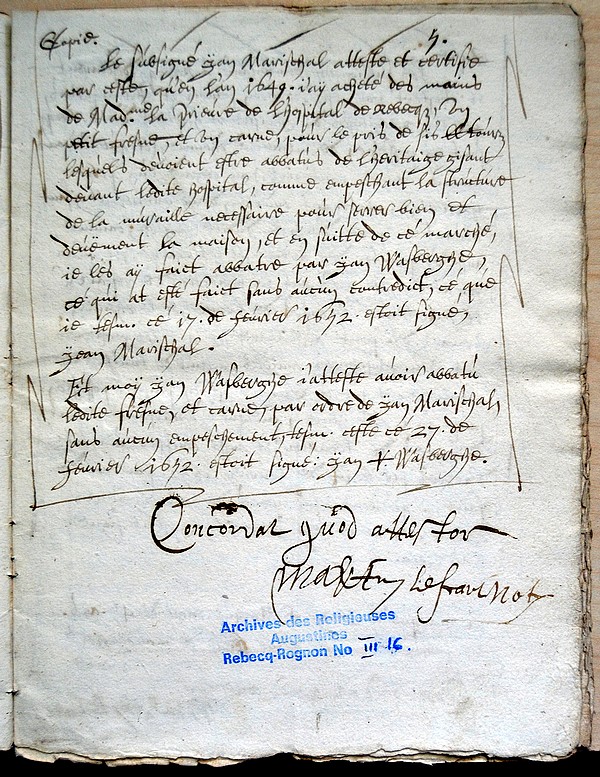 Copie.
5.
Le subsigné Jan Marischal atteste et certifie
par ceste, qu'en l'an 1649. j'ay acheté des mains
de Mad.me la Prieure de l'hospital de Rebecq, un
petit fresne, et un carne, pour le pris de six
lesquels devoient estre abbatus de l'heritaige gisant
devant ledite hospital, comme empeschant la structure
de la muraille necessaire pour serrer bien et
deuëment la maison, et en suitte de cé marché,
ie les aÿ faict abbatre par Jan Wasberghe,
cé qui at esté faict sans aucun contredict, cé que
ie tesm. cé 17. de Fevrier 1652. estoit signé,
Jean Marischal.
Et moy Jan Wasberghe j'atteste avoir abbatu
ledite fresne, et carne, par ordre de Jan Marischal,
sans aucun empeschement, tesm. ceste cé 27. de
Fevrier 1652. estoit signé: Jan + Wasberghe.
Concordat quod attestor
Not
Archives des Religieuses
Augustines
Rebecq-Rognon No III 16.